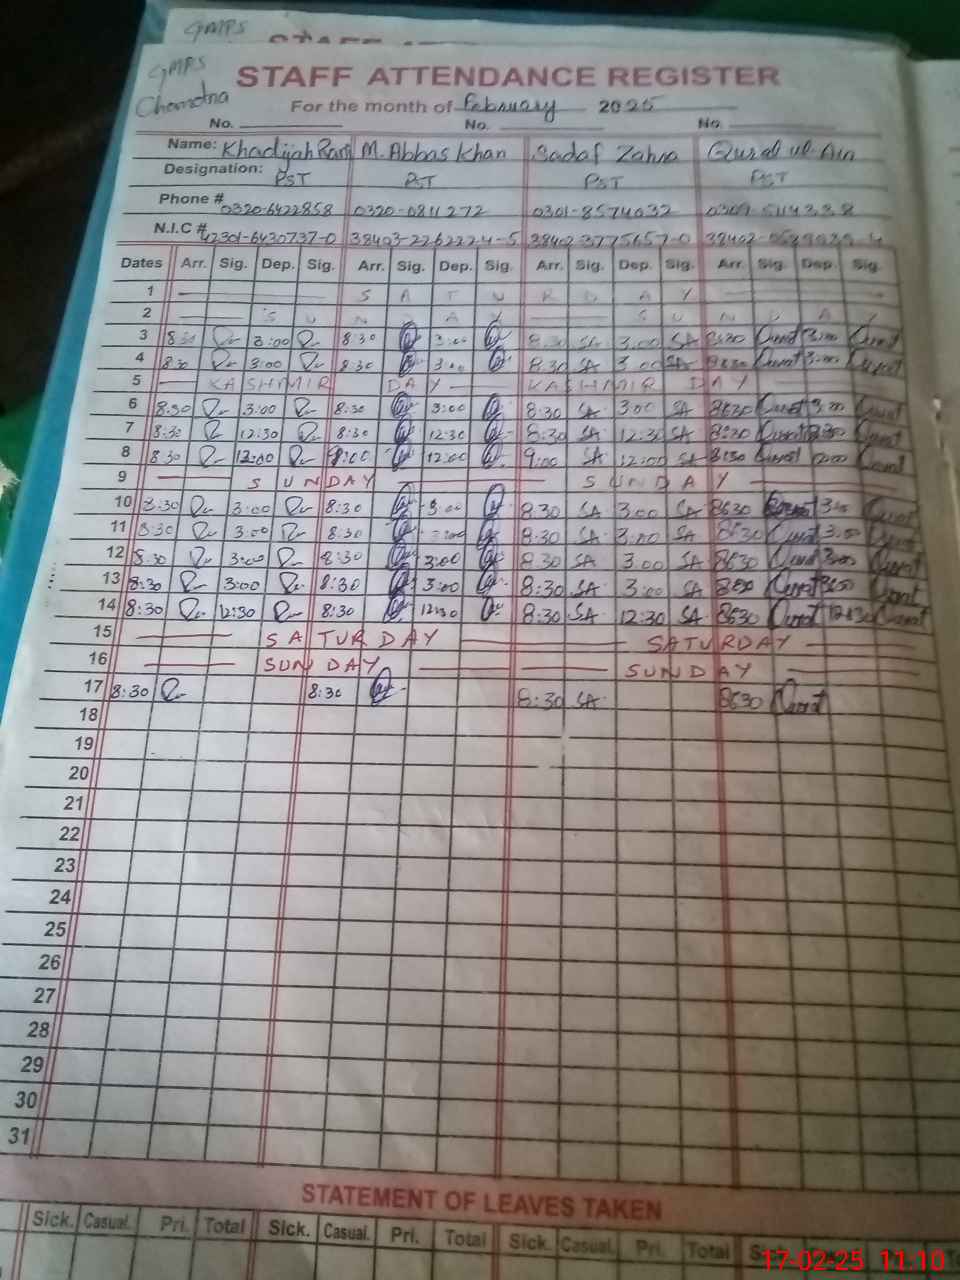 GMPS
STAFF ATTENDANCE REGISTER
GMPS
Chamdna
For the month of February 2025
No. No. No.
Name: Khadijah Rani M. Abbas Khan Sadaf Zahra Qurat ul Ain
Designation: PST PST PST PST
Phone # 0320-6422858 0320-0811272 0301-8574032
N.I.C # 42301-6430737-0 38403-2262224-5 38402-3775657-0
Dates Arr. Sig. Dep. Sig. Arr. Sig. Dep. Sig. Arr. Sig. Dep. Sig. Arr. Sig. Dep. Sig.
1 SATURDAY
2 SUNDAY SUNDAY
3 8:30 3:00 8:30 3:00 8:30 SA 3:00 SA 8:30 Qurat 3:00 Qurat
4 8:30 3:00 8:30 3:00 8:30 SA 3:00 SA 8:30 Qurat 3:00 Qurat
5 KASHMIR DAY KASHMIR DAY
6 8:30 3:00 8:30 3:00 8:30 SA 3:00 SA 8:30 Qurat 3:00 Qurat
7 8:30 12:30 8:30 12:30 8:30 SA 12:30 SA 8:30 Qurat Qurat
8 8:30 12:00 9:00 12:00 9:00 SA 12:00 SA 8:30 Qurat 12:00 Qurat
9 SUNDAY SUNDAY
10 8:30 3:00 8:30 3:00 8:30 SA 3:00 SA 8:30 Qurat 3:00 Qurat
11 8:30 3:00 8:30 3:00 8:30 SA 3:00 SA 8:30 Qurat 3:00 Qurat
12 8:30 3:00 8:30 3:00 8:30 SA 3:00 SA 8:30 Qurat 3:00 Qurat
13 8:30 3:00 8:30 3:00 8:30 SA 3:00 SA 8:30 Qurat 3:00 Qurat
14 8:30 12:30 8:30 12:30 8:30 SA 12:30 SA 8:30 Qurat 12:30 Qurat
15 SATURDAY SATURDAY
16 SUNDAY SUNDAY
17 8:30 8:30 8:30 SA 8:30 Qurat
18
19
20
21
22
23
24
25
26
27
28
29
30
31
STATEMENT OF LEAVES TAKEN
Sick. Casual. Pri. Total Sick. Casual. Pri. Total Sick. Casual. Pri. Total Sick.
17-02-25 11:10